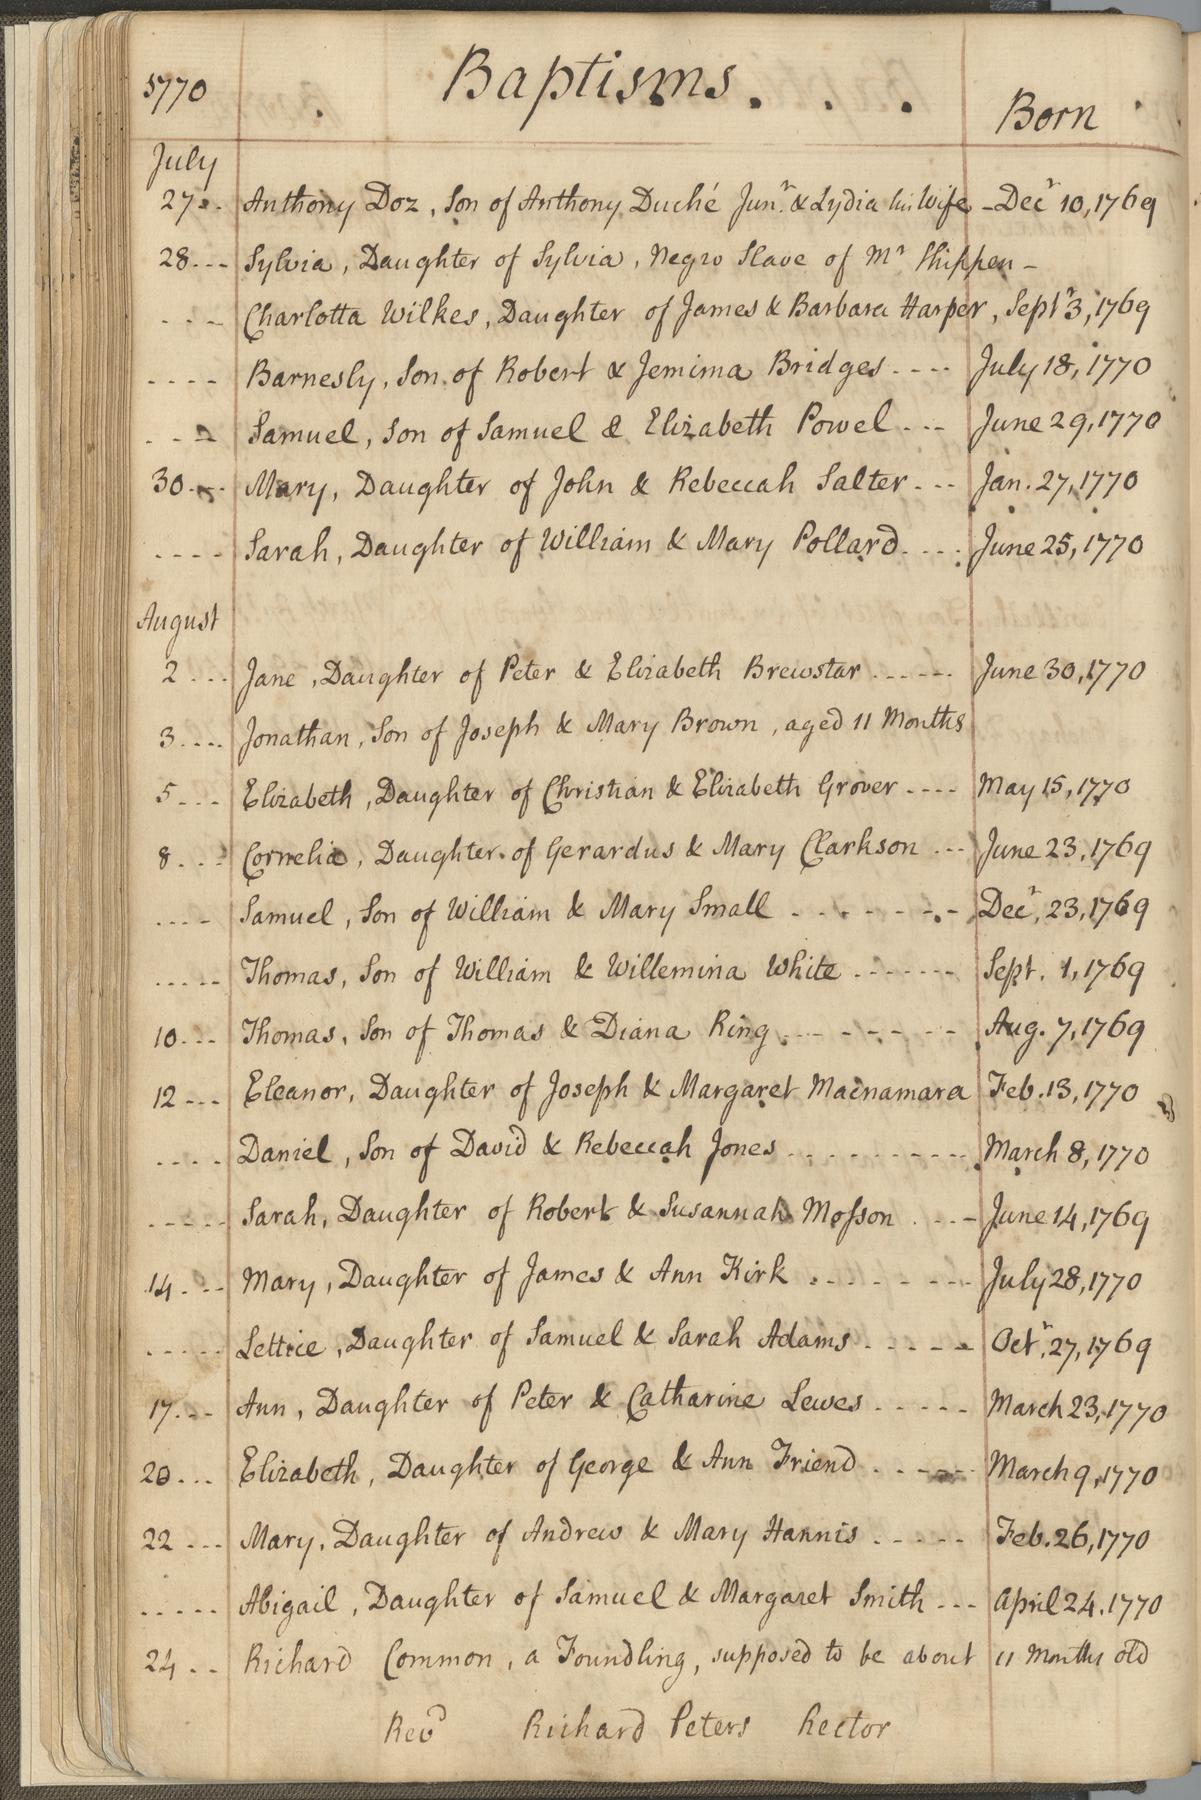 1770 Baptisms. . . Born
July
27... Anthony Doz, Son of Anthony Duché Junr. & Lydia his Wife - Decr 10, 1769
28... Sylvia, Daughter of Sylvia, Negro Slave of Mr Shippen -
- - - Charlotta Wilkes, Daughter of James & Barbara Harper, Septr 3, 1769
- - - - Barnesly, Son of Robert & Jemima Bridges - - - - July 18, 1770
- - - Samuel, Son of Samuel & Elizabeth Powel - - - June 29, 1770
30... Mary, Daughter of John & Rebeccah Salter - - - Jan. 27, 1770
- - - - Sarah, Daughter of William & Mary Pollard - - - - June 25, 1770
August
2 ... Jane, Daughter of Peter & Elizabeth Brewstar - - - - - - June 30, 1770
3.... Jonathan, Son of Joseph & Mary Brown, aged 11 Months
5 ... Elizabeth, Daughter of Christian & Elizabeth Grover - - - - May 15, 1770
8 ... Cornelia, Daughter of Gerardus & Mary Clarkson - - - June 23, 1769
- - - - Samuel, Son of William & Mary Small - - - - - - - Decr, 23, 1769
- - - - - Thomas, Son of William & Willemina White - - - - - - - Sept. 1, 1769
10... Thomas, Son of Thomas & Diana Ring - - - - - - - Aug. 7, 1769
12 ... Eleanor, Daughter of Joseph & Margaret Macnamara Feb. 13, 1770
- - - - Daniel, Son of David & Rebeccah Jones - - - - - - - - - March 8, 1770
- - - - - Sarah, Daughter of Robert & Susannah Mosson - - - June 14, 1769
14 ... Mary, Daughter of James & Ann Kirk - - - - - - - July 28, 1770
- - - - - Lettice, Daughter of Samuel & Sarah Adams - - - - - Octr, 27, 1769
17 ... Ann, Daughter of Peter & Catharine Lewes - - - - - March 23, 1770
20 ... Elizabeth, Daughter of George & Ann Friend - - - - - March 9, 1770
22 ... Mary, Daughter of Andrew & Mary Hannis - - - - - Feb. 26, 1770
- - - - - Abigail, Daughter of Samuel & Margaret Smith - - - April 24, 1770
24 .. Richard Common, a Foundling, supposed to be about 11 Months old
Revd Richard Peters Rector